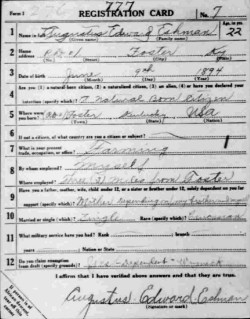 Form 1
777
REGISTRATION CARD
No. 7
1 Name in full Augustus Edward Eshman Age, in yrs. 22
(Given name) (Family name)
2 Home address Foster Ky
(No.) (Street) (City) (State)
3 Date of birth June 9th 1894
(Month) (Day) (Year)
4 Are you (1) a natural-born citizen, (2) a naturalized citizen, (3) an alien, (4) or have you declared your
intention (specify which)? A Natural Born Citizen
5 Where were you born? Foster Kentucky USA
(Town) (State) (Nation)
6 If not a citizen, of what country are you a citizen or subject?
7 What is your present trade, occupation, or office? Farming
8 By whom employed? Myself
Where employed? miles from Foster
9 Have you a father, mother, wife, child under 12, or a sister or brother under 12, solely dependent on you for
support (specify which)? Mother
10 Married or single (which)? Single Race (specify which)? Caucasian
11 What military service have you had? Rank branch
years Nation or State
12 Do you claim exemption from draft (specify grounds)? Yes - Dependent -
I affirm that I have verified above answers and that they are true.
Augustus Edward Eshman
(Signature or mark)